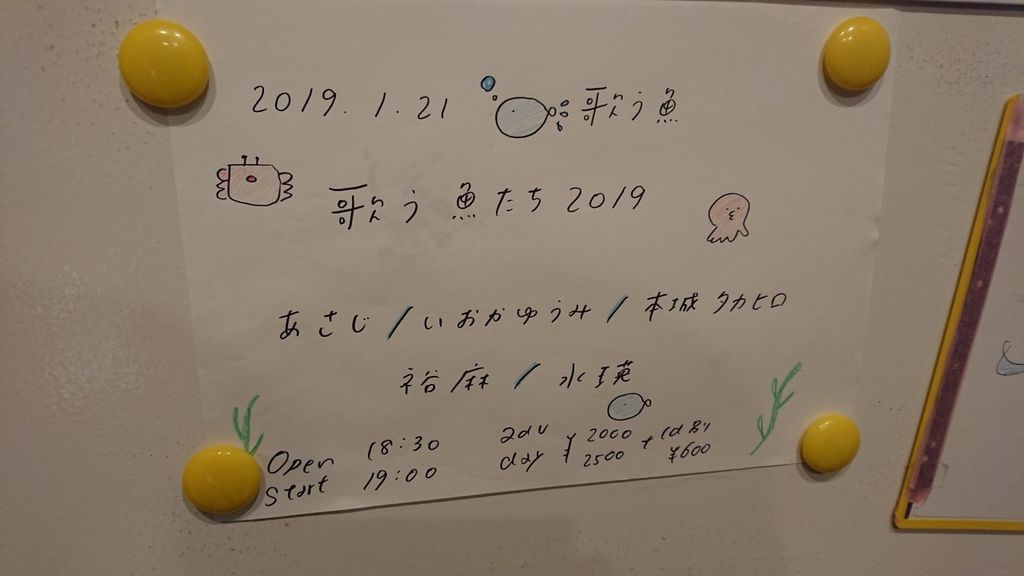 2019.1.21 歌う魚
歌う魚たち2019
あさじ/いおかゆうみ/本城タカヒロ
裕麻/水瑛
Open 18:30 adv ¥2000 +1d別
Start 19:00 day ¥2500 ¥600